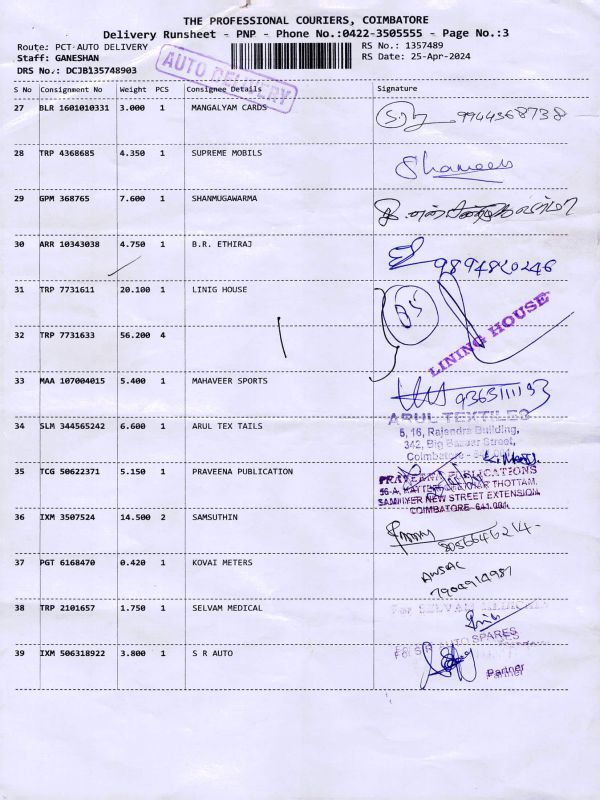 THE PROFESSIONAL COURIERS, COIMBATORE
Delivery Runsheet - PNP - Phone No.:0422-3505555 - Page No.:3
Route: PCT AUTO DELIVERY
RS No.: 1357489
Staff: GANESHAN
RS Date: 25-Apr-2024
DRS No.: DCJB135748903
AUTO DELIVERY
S No Consignment No Weight PCS Consignee Details Signature
27 BLR 1601010331 3.000 1 MANGALYAM CARDS 9944368738
28 TRP 4368685 4.350 1 SUPREME MOBILS
29 GPM 368765 7.600 1 SHANMUGAWARMA
30 ARR 10343038 4.750 1 B.R. ETHIRAJ 9894820246
31 TRP 7731611 20.100 1 LINIG HOUSE
LINING HOUSE
32 TRP 7731633 56.200 4
33 MAA 107004015 5.400 1 MAHAVEER SPORTS
34 SLM 344565242 6.600 1 ARUL TEX TAILS
ARUL TEXTILES
5, 16, Rajendra Building,
342, Big Bazaar Street,
Coimbatore
35 TCG 50622371 5.150 1 PRAVEENA PUBLICATION
PRAVEENA PUBLICATIONS
THOTTAM,
NEW STREET EXTENSION,
COIMBATORE- 641 001
36 IXM 3507524 14.500 2 SAMSUTHIN
37 PGT 6168470 0.420 1 KOVAI METERS
38 TRP 2101657 1.750 1 SELVAM MEDICAL
For SELVAM MEDICAL
39 IXM 506318922 3.800 1 S R AUTO
For S.R. AUTO SPARES
Partner